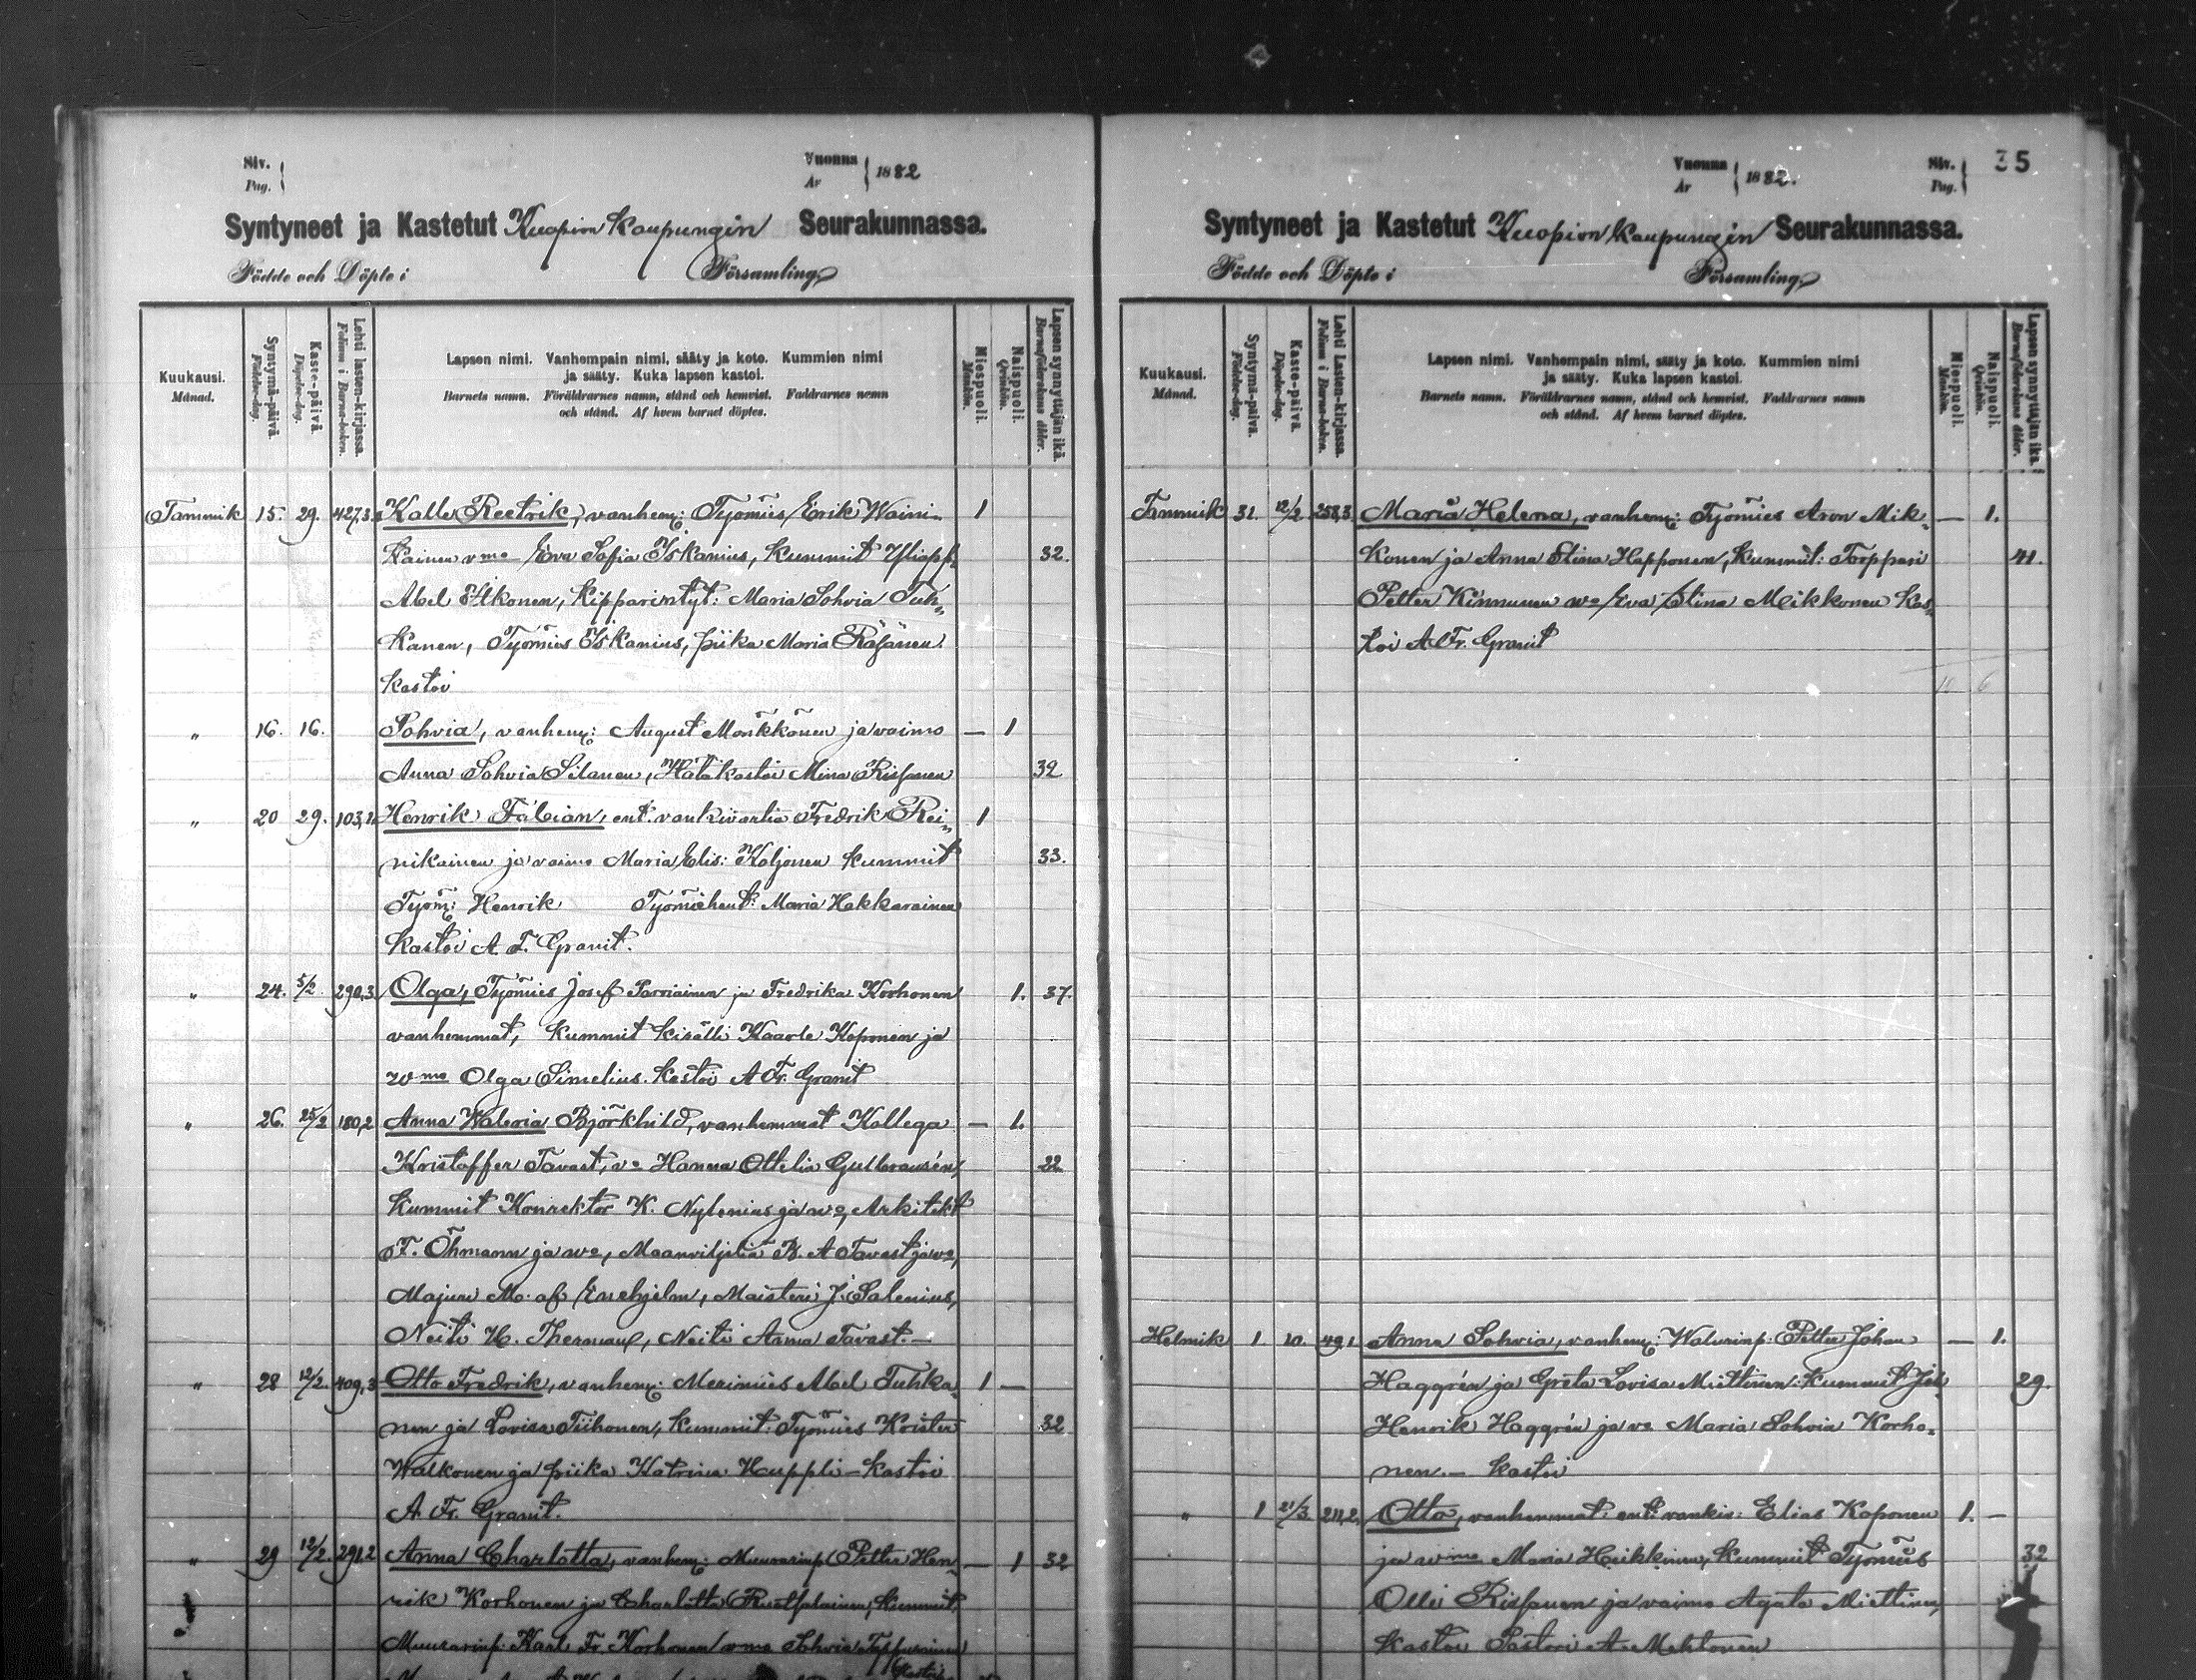 Siv.
Pag.
Vuonna
År
1882
Syntyneet ja Kastetut Kuopion Kaupungin Seurakunnassa.
Födde och Döpte i Församling.
Kuukausi.
Månad.
Syntymä-päivä.
Födelse-dag.
Kaste-päivä.
Döpelse-dag.
Lehti lasten-kirjassa.
Folium i Barna-boken.
Lapsen nimi. Vanhempain nimi, sääty ja koto. Kummien nimi
ja sääty. Kuka lapsen kastoi.
Barnets namn. Föräldrarnes namn, stånd och hemvist. Faddrarnes namn
och stånd. Af hvem barnet döptes.
Miespuoli.
Mankön.
Naispuoli.
Qvinkön.
Lapsen synnyttäjän ikä.
Barnaföderskans ålder.
Tammik 15. 29. 427,3 Kalle Reetrik, vanhem: Työmies Erik Waini- 1
kainen vmo Eva Sofia Iskanius, Kummit 32.
Abel Itkonen, Maria Sohvia Tuh-
kanen, Työmies Iskanius, piika Maria Räsänen
kastoi
" 16. 16. Sohvia, vanhem: August Mönkkönen ja vaimo — 1
Anna Sohvia Silanen, Hätäkastoi Mina Rissanen 32
" 20 29. 103,1 Henrik Fabian, ent. vankivartia Fredrik Rei- 1
nikainen ja vaimo Maria Elis: Koljonen kummit 33.
Työm: Henrik Työmiehent: Maria Hakkarainen
kastoi A. F. Granit.
" 24. 5/2 290,3 Olga, Työmies Josef Parviainen ja Fredrika Korhonen 1. 37.
vanhemmat, Kummit kisälli Kaarle Koponen ja
vmo Olga Simelius. Kastoi A Fr. Granit
" 26. 25/2 180,2 Anna Waleria Björkhild, vanhemmat Kollega — 1.
Kristoffer Tavast, vo Hanna Ottelia 22
Kummit Konrektor K. Nylenius ja wo, Arkitekt
F. Öhmann ja wo, Maanviljeliä B. A Tavast ja wo,
Majuri M. af Enehjelm, Maisteri J. Salenius,
Neiti H. Therman, Neiti Anna Tavast. —
" 28 12/2. 409,3 Otto Fredrik, vanhem: Merimies Abel Tuhka- 1 —
nen ja Lovisa Tiihonen, Kummit: Työmies Krister 32
Walkonen ja piika Katrina Huppli — Kastoi
A. Fr. Granit.
" 29 12/2. 291,2 Anna Charlotta, vanhem: Muurarinp Petter Hen- — 1 32
rik Korhonen ja Charlotta Ruotsalainen, kummit
Muurarinp. Karl Fr. Korhonen vmo Sohvia
Vuonna
År
1882.
Siv.
Pag.
35
Syntyneet ja Kastetut Kuopion kaupungin Seurakunnassa.
Födde och Döpte i Församling.
Kuukausi.
Månad.
Syntymä-päivä.
Födelse-dag.
Kaste-päivä.
Döpelse-dag.
Lehti Lasten-kirjassa.
Folium i Barna-boken.
Lapsen nimi. Vanhempain nimi, sääty ja koto. Kummien nimi
ja sääty. Kuka lapsen kastoi.
Barnets namn. Föräldrarnes namn, stånd och hemvist. Faddrarnes namn
och stånd. Af hvem barnet döptes.
Miespuoli.
Mankön.
Naispuoli.
Qvinkön.
Lapsen synnyttäjän ikä.
Barnaföderskans ålder.
Tammik 31. 12/2 258,3 Maria Helena, vanhem: Työmies Aron Mik- — 1.
konen ja Anna Stina Happonen, Kummit: Torppari 41.
Petter Kinnunen wo Eva Stina Mikkonen Kas-
toi A Fr. Granit
10 6
Helmik 1. 20. 49,1 Anna Sohvia, vanhem: Walurinp: Petter Johan — 1.
Haggrén ja Greta Lovisa Miettinen: Kummit 29.
Henrik Haggrén ja vo Maria Sohvia Korho-
nen. — Kastoi
" 1 21/3 211,2. Otto, vanhemmat: ent. vankiv: Elias Koponen 1. —
ja wmo Maria Heikkinen, Kummit Työmies 32
Olli Rissanen ja vaimo Agata Miettinen,
Kastoi Pastori A. Mehtonen